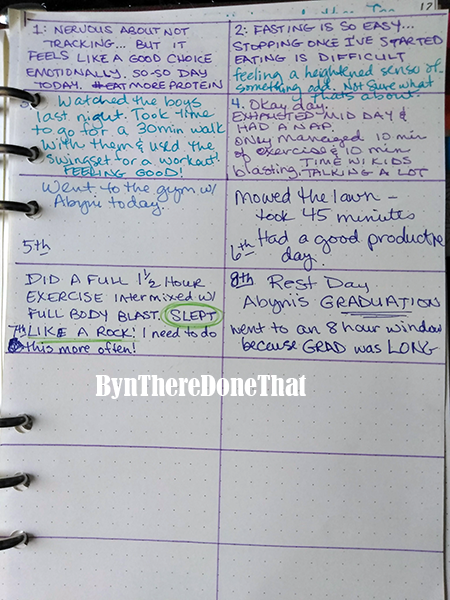 12
1: NERVOUS ABOUT NOT
TRACKING... BUT IT
FEELS LIKE A GOOD CHOICE
EMOTIONALLY. SO-SO DAY
TODAY. #EAT MORE PROTEIN
2: FASTING IS SO EASY...
STOPPING ONCE I'VE STARTED
EATING IS DIFFICULT
feeling a heightened sense of
something odd. Not sure what
that's about.
Watched the boys
last night. Took time
to go for a 30min walk
with them & used the
swingset for a workout!
FEELING GOOD!
4. Okay day.
EXHAUSTED MID DAY &
HAD A NAP.
ONLY Managed 10 min
of exercise & 10 min
TIME W/ KIDS
blasting. TALKING A LOT
Went to the gym w/
Abyni today.
5th
Mowed the lawn -
took 45 minutes
6th Had a good productive
day.
DID A FULL 1 1/2 HOUR
EXERCISE intermixed w/
FULL BODY BLAST. SLEPT
7th LIKE A ROCK! I need to do
this more often!
8th REST DAY
Abyni's GRADUATION
went to an 8 hour window
because GRAD was LONG
BynThereDoneThat